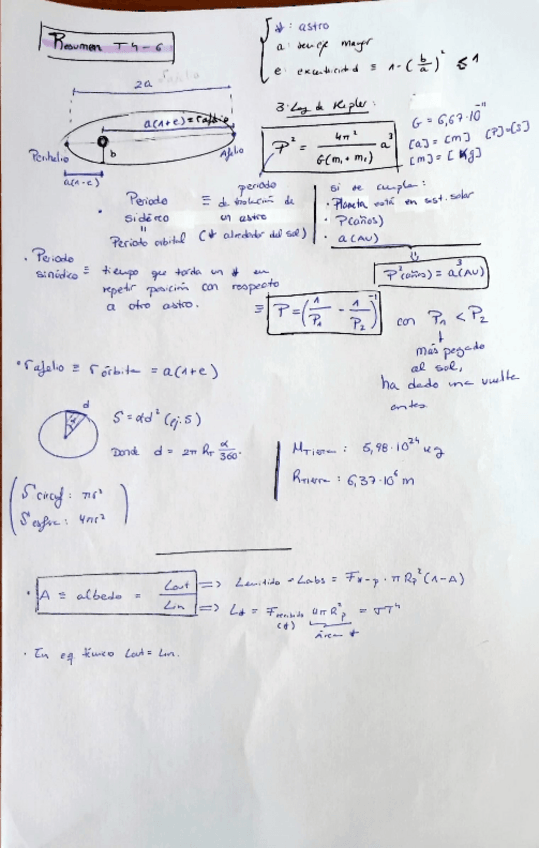 Resumen T4-6
☆: astro
a: semieje mayor
e: excentricidad ≡ 1-(b/a)² ≤ 1
2a
a(1+e)=rafelio
Perihelio
b
Afelio
a(1-e)
3ª Ley de Kepler:
P² = 4π² / G(m₁+m₂) a³
G = 6,67·10⁻¹¹
[a]=[m] [P]=[s]
[m]=[kg]
· Periodo sidéreo ≡ periodo de traslación de un astro
"
Periodo orbital (☆ alrededor del sol)
si se cumple:
· Planeta está en sist. solar
· P(años)
· a(AU)
P²(años) = a³(AU)
· Periodo sinódico ≡ tiempo que tarda un ☆ en
repetir posición con respecto
a otro astro.
≡ P = (1/P₁ - 1/P₂)⁻¹
con P₁ < P₂
más pegado
al sol,
ha dado una vuelta
antes
· rafelio ≡ rórbita = a(1+e)
d
α
S = αd² (ej. 5)
Donde d = 2π R_T α/360·
M_Tierra: 5,98·10²⁴ kg
R_Tierra: 6,37·10⁶ m
(S circuf: πr²
S esfera: 4πr²)
· A ≡ albedo = Lout/Lin
=> Lemitido = Labs = F☆-p · πRp²(1-A)
=> L☆ = Frecibido (☆) 4πRp² = σT⁴
área ☆
· En eq. térmico Lout = Lin.